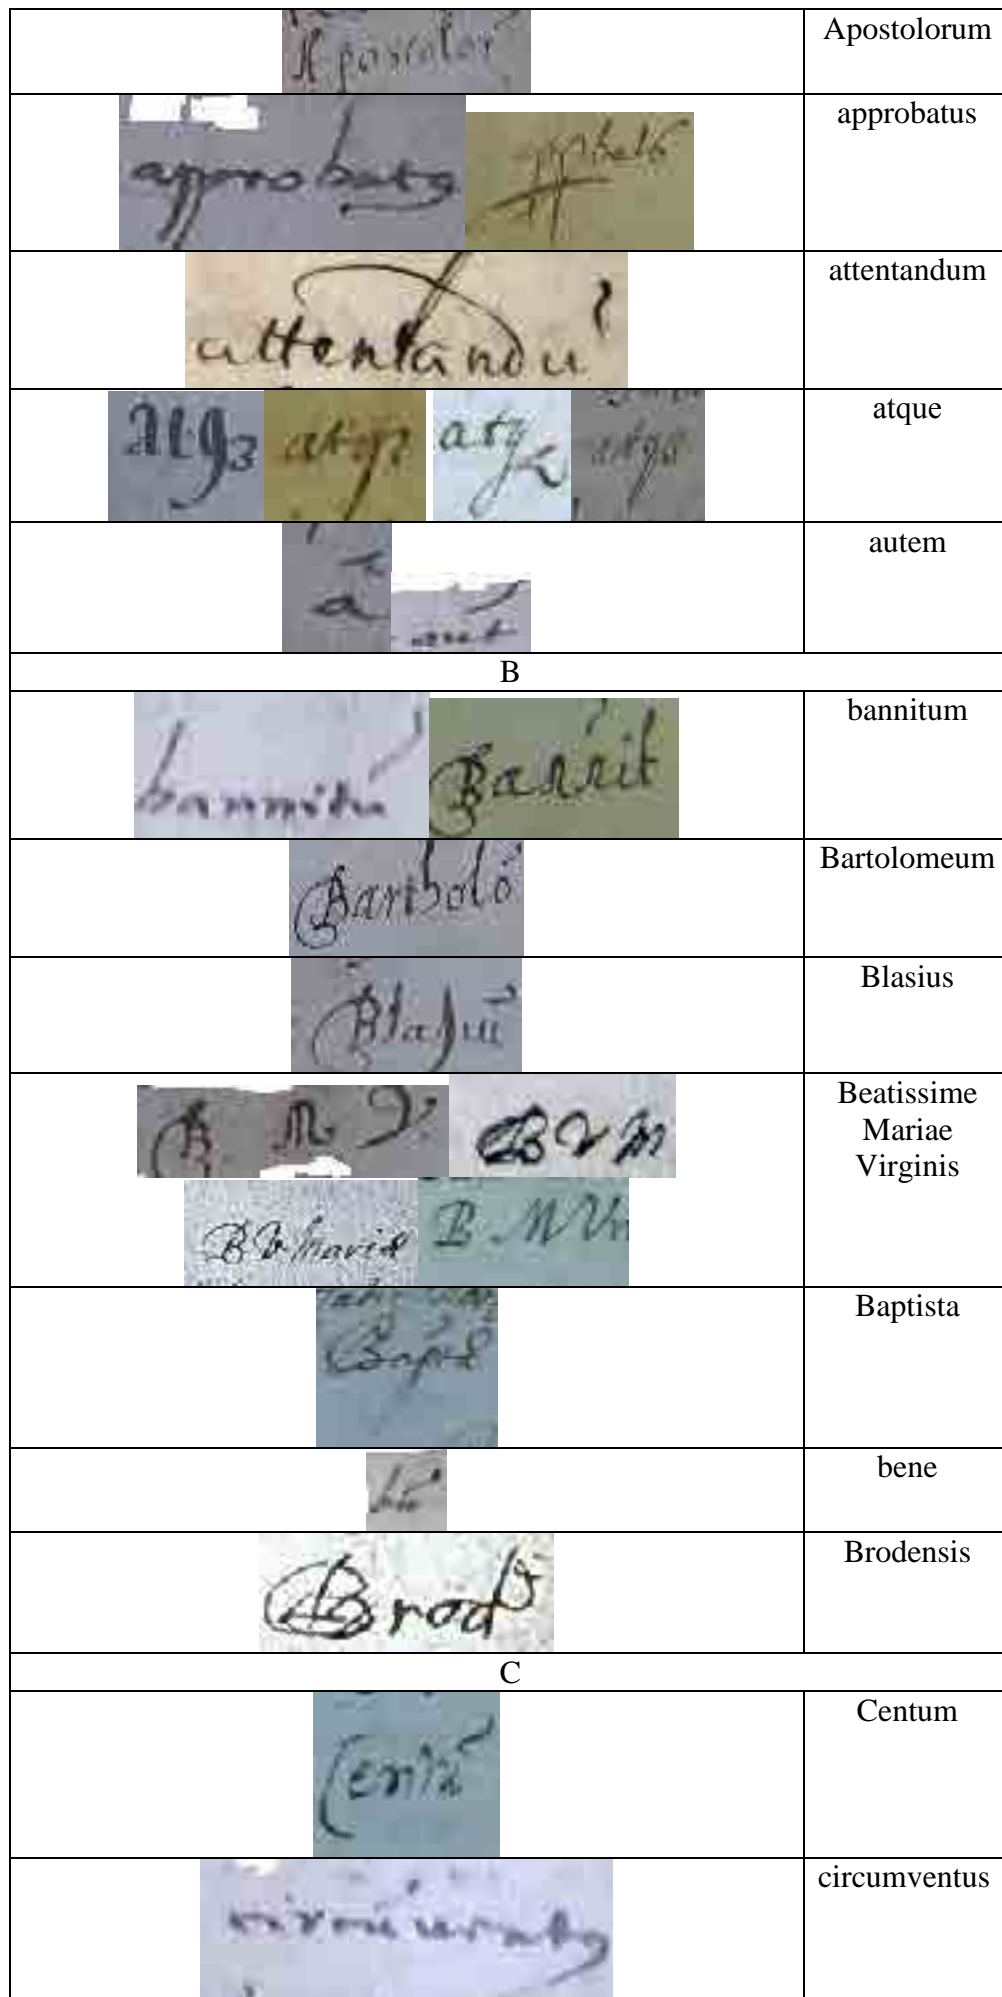 Apostolor Apostolorum
approbatg approbatus
attentandu attentandum
Atq3 atq3 atq atq3 atque
a autem
B
bannitu Bannit bannitum
Bartholo Bartolomeum
Blasiu Blasius
B M V B V M Beatissime
Mariae
B V Mariae B M Vir Virginis
Bapt Baptista
bene
Brod Brodensis
C
Centu Centum
circumventus